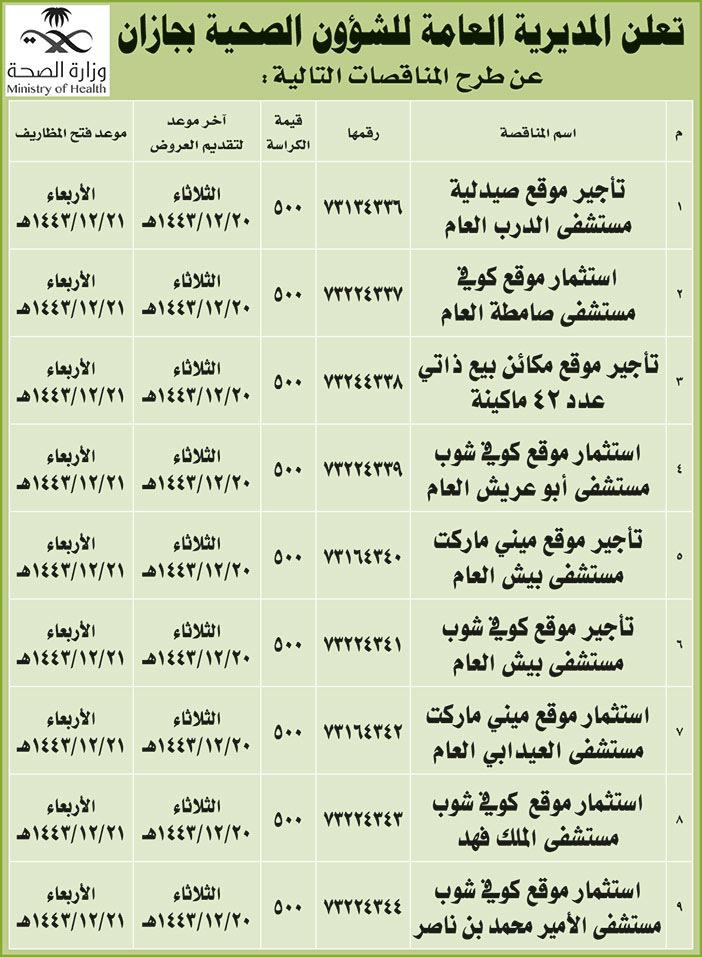 تعلن المديرية العامة للشؤون الصحية بجازان
عن طرح المناقصات التالية :
وزارة الصحة
Ministry of Health
م
اسم المناقصة
رقمها
قيمة
الكراسة
آخر موعد
لتقديم العروض
موعد فتح المظاريف
١
تأجير موقع صيدلية
مستشفى الدرب العام
٧٣١٣٤٣٣٦
٥٠٠
الثلاثاء
١٤٤٣/١٢/٢٠هـ
الأربعاء
١٤٤٣/١٢/٢١هـ
٢
استثمار موقع كوفي
مستشفى صامطة العام
٧٣٢٢٤٣٣٧
٥٠٠
الثلاثاء
١٤٤٣/١٢/٢٠هـ
الأربعاء
١٤٤٣/١٢/٢١هـ
٣
تأجير موقع مكائن بيع ذاتي
عدد ٤٢ ماكينة
٧٣٢٤٤٣٣٨
٥٠٠
الثلاثاء
١٤٤٣/١٢/٢٠هـ
الأربعاء
١٤٤٣/١٢/٢١هـ
٤
استثمار موقع كوفي شوب
مستشفى أبو عريش العام
٧٣٢٢٤٣٣٩
٥٠٠
الثلاثاء
١٤٤٣/١٢/٢٠هـ
الأربعاء
١٤٤٣/١٢/٢١هـ
٥
تأجير موقع ميني ماركت
مستشفى بيش العام
٧٣١٦٤٣٤٠
٥٠٠
الثلاثاء
١٤٤٣/١٢/٢٠هـ
الأربعاء
١٤٤٣/١٢/٢١هـ
٦
تأجير موقع كوفي شوب
مستشفى بيش العام
٧٣٢٢٤٣٤١
٥٠٠
الثلاثاء
١٤٤٣/١٢/٢٠هـ
الأربعاء
١٤٤٣/١٢/٢١هـ
٧
استثمار موقع ميني ماركت
مستشفى العيدابي العام
٧٣١٦٤٣٤٢
٥٠٠
الثلاثاء
١٤٤٣/١٢/٢٠هـ
الأربعاء
١٤٤٣/١٢/٢١هـ
٨
استثمار موقع كوفي شوب
مستشفى الملك فهد
٧٣٢٢٤٣٤٣
٥٠٠
الثلاثاء
١٤٤٣/١٢/٢٠هـ
الأربعاء
١٤٤٣/١٢/٢١هـ
٩
استثمار موقع كوفي شوب
مستشفى الأمير محمد بن ناصر
٧٣٢٢٤٣٤٤
٥٠٠
الثلاثاء
١٤٤٣/١٢/٢٠هـ
الأربعاء
١٤٤٣/١٢/٢١هـ